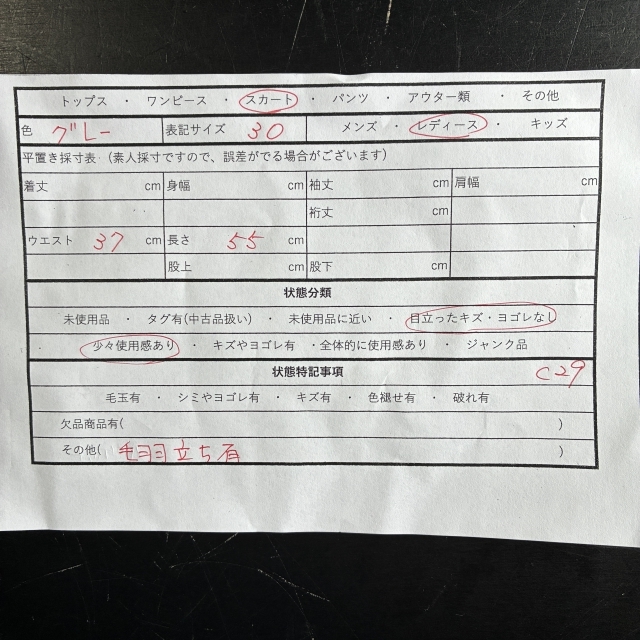 トップス ・ ワンピース ・ スカート ・ パンツ ・ アウター類 ・ その他
色 グレー 表記サイズ 30 メンズ ・ レディース ・ キッズ
平置き採寸表（素人採寸ですので、誤差がでる場合がございます）
着丈 cm 身幅 cm 袖丈 cm 肩幅 cm
裄丈 cm
ウエスト 37 cm 長さ 55 cm
股上 cm 股下 cm
状態分類
未使用品 ・ タグ有(中古品扱い) ・ 未使用品に近い ・目立ったキズ・ヨゴレなし
少々使用感あり ・ キズやヨゴレ有 ・全体的に使用感あり ・ ジャンク品
状態特記事項 C29
毛玉有 ・ シミやヨゴレ有 ・ キズ有 ・ 色褪せ有 ・ 破れ有
欠品商品有( )
その他( 毛羽立ち有 )